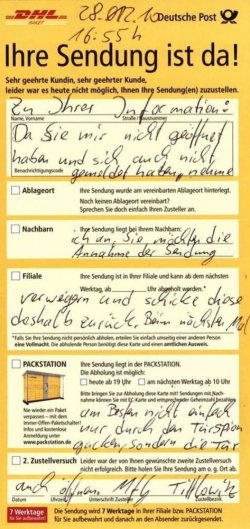 DHL
PAKET
28.012.10
Deutsche Post
16:55 h
Ihre Sendung ist da!
Sehr geehrte Kundin, sehr geehrter Kunde,
leider war es heute nicht möglich, Ihnen Ihre Sendung(en) zuzustellen.
Zu Ihrer Information:
Name, Vorname
Straße / Hausnummer
Da Sie mir nicht geöffnet
haben und sich auch nicht
Benachrichtigungscode
gemeldet haben, nehme
Ablageort
Ihre Sendung wurde am vereinbarten Ablageort hinterlegt.
Noch keinen Ablageort vereinbart?
Sprechen Sie doch einfach Ihren Zusteller an.
Nachbarn
Ihre Sendung liegt bei Ihrem Nachbarn:
ich an, Sie möchten die
Annahme der Sendung
Filiale
Ihre Sendung ist in Ihrer Filiale und kann ab dem nächsten
Werktag, ab Uhr abgeholt werden.*
verweigern und schicke diese
deshalb zurück. Beim nächsten Mal
*Falls Sie Ihre Sendung nicht persönlich abholen, erteilen Sie einfach umseitig einer anderen Person
eine Vollmacht. Die abholende Person benötigt diese Karte und einen amtlichen Ausweis.
PACKSTATION
Ihre Sendung liegt in der PACKSTATION.
Die Abholung ist möglich:
heute ab 19 Uhr
am nächsten Werktag ab 10 Uhr
Bitte bringen Sie zur Abholung diese Karte
am Besten nicht einfach
Nie wieder ein Paket
verpassen – mit dem
Immer-Offen-Paketschalter!
Infos und kostenlose
Anmeldung unter
www.packstation.de
nur durch den Türspion
gucken, sondern die Tür
2. Zustellversuch
Leider war der von Ihnen gewünschte zweite Zustellversuch
nicht erfolgreich. Bitte holen Sie Ihre Sendung am o. g. Ort ab.
auch öffnen. MfG
Datum
Uhrzeit
Unterschrift Zusteller
Zustellbezirk
7 Werktage
für Sie aufbewahrt
Die Sendung wird 7 Werktage in Ihrer Filiale bzw. PACKSTATION
für Sie aufbewahrt und danach an den Absender zurückgeschickt.